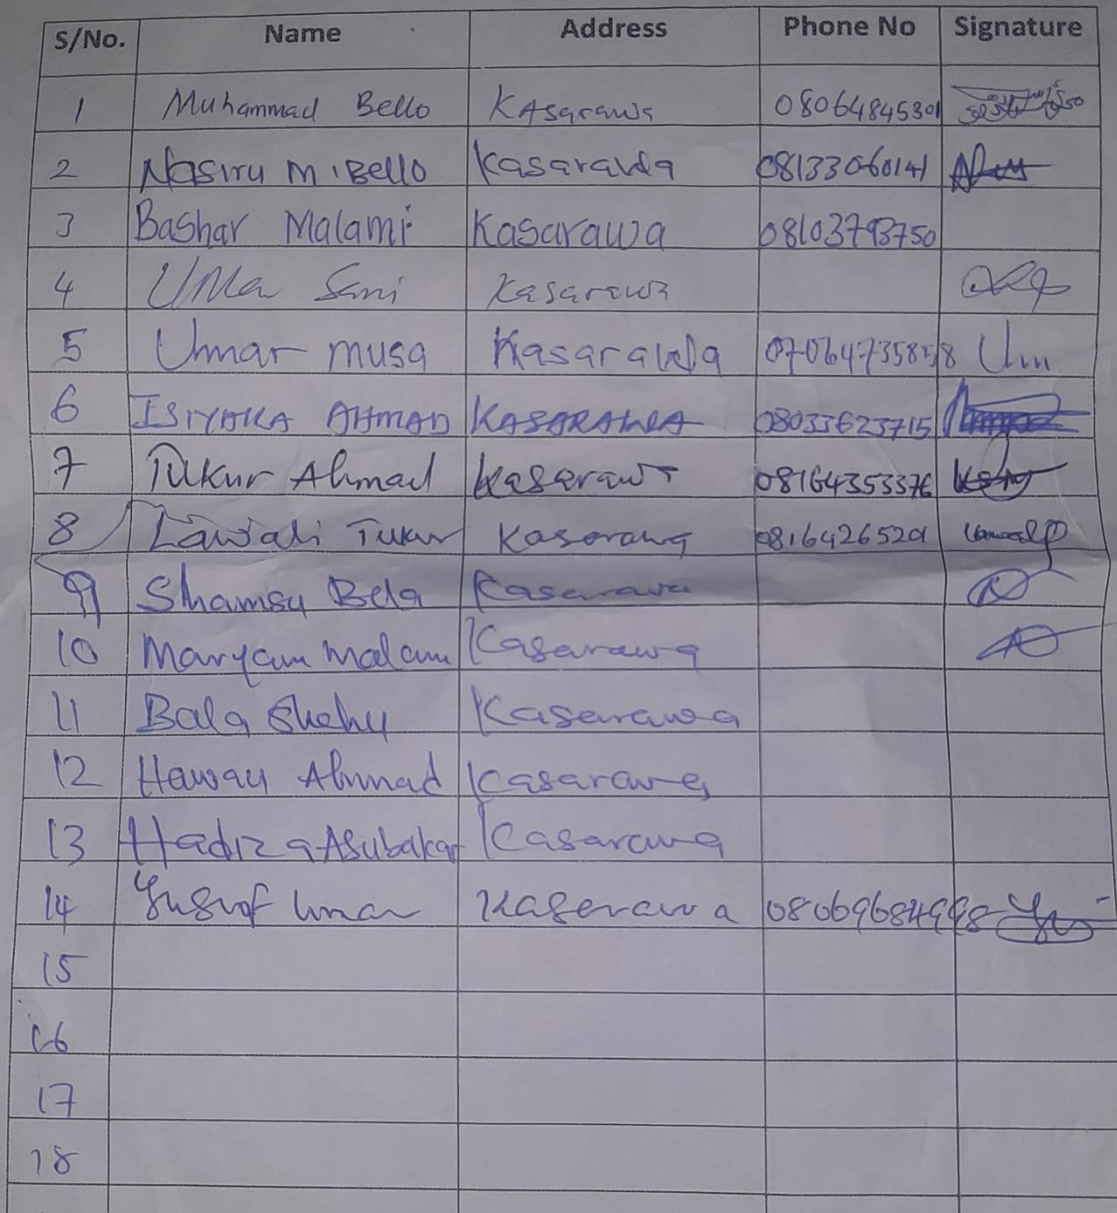 S/No. Name Address Phone No Signature
1 Muhammad Bello KAsarawa 08064845301
2 Nasiru M. Bello Kasarawa 08133060141
3 Bashar Malami Kasarawa 08103793750
4 Uma Sani Kasarawa
5 Umar musa Kasarawa 07064735858 Um
6 ISIYAKA AHMAD KASARAWA 08033623715
7 Tukur Ahmad Kasarawa 08164353376
8 Lawali Tukur Kasarawa 0816426529
9 Shamsu Bela Kasarawa
10 Maryam malam Kasarawa
11 Bala Shehu Kasarawa
12 Hawau Ahmad Kasarawa
13 Hadiza Abubakar Kasarawa
14 Yusuf Umar Kasarawa 08069684998
15
16
17
18